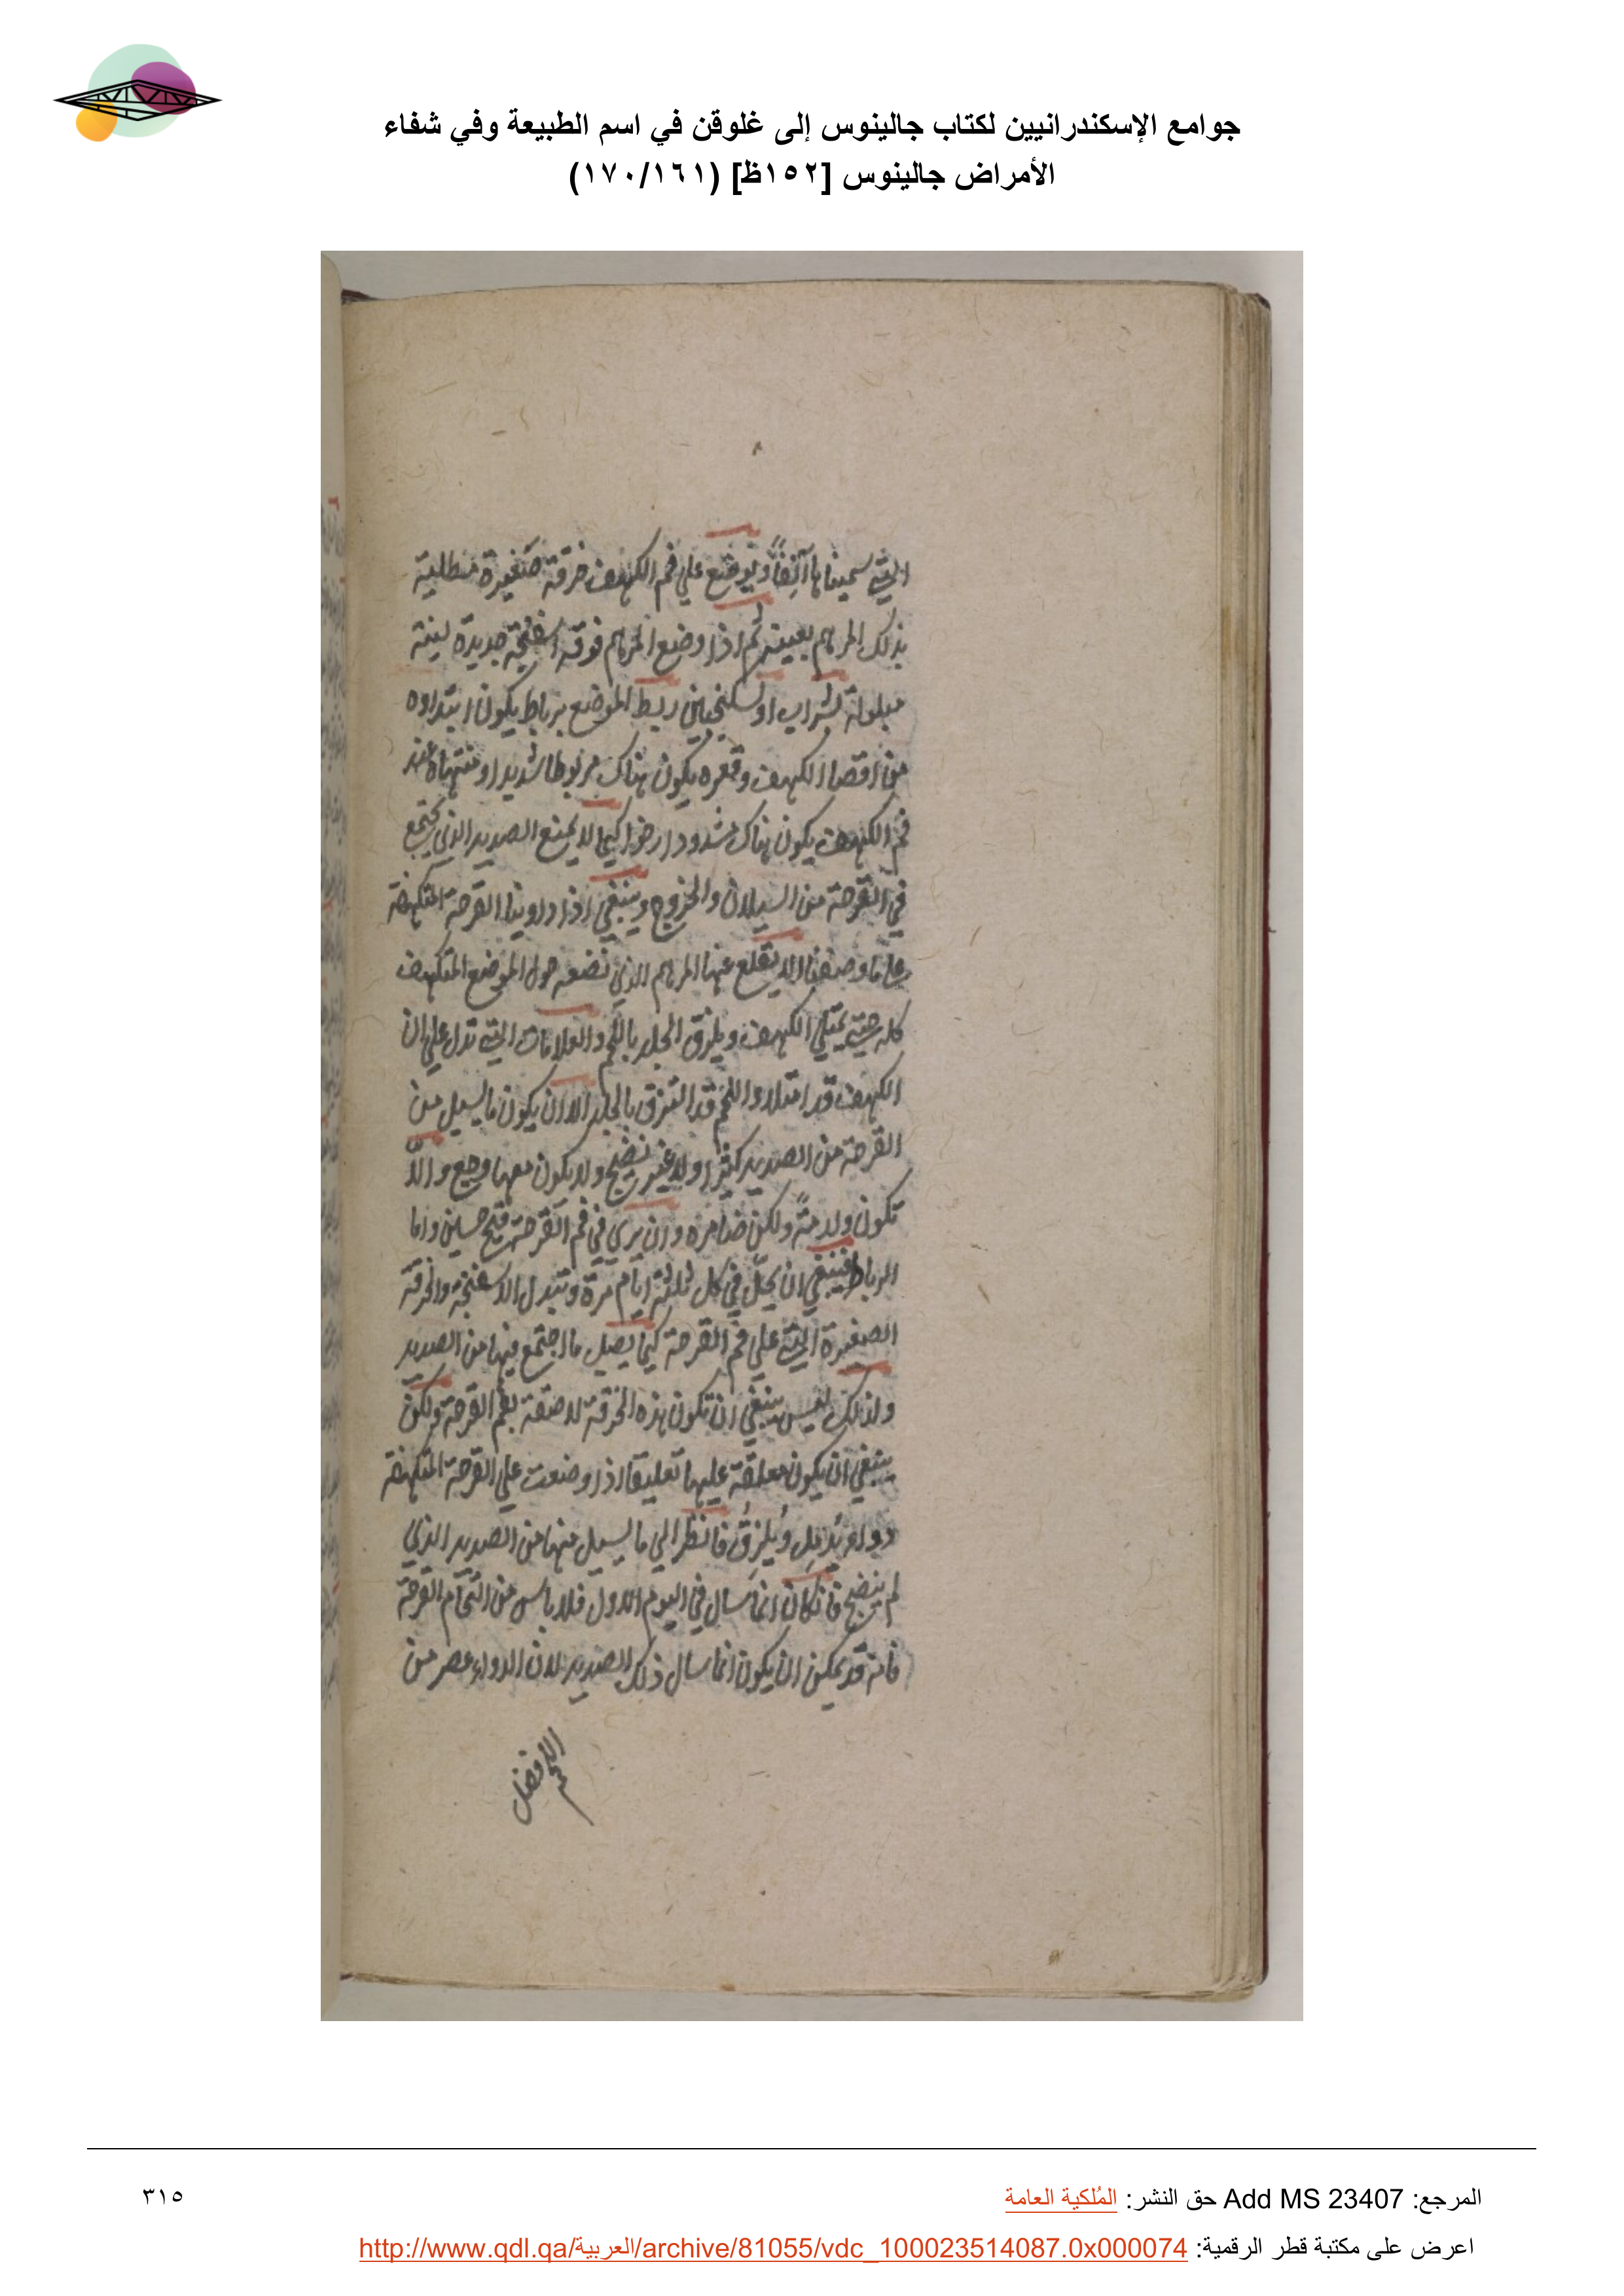 جوامع الإسكندرانيين لكتاب جالينوس إلى غلوقن في اسم الطبيعة وفي شفاء
الأمراض جالينوس [١٥٢ظ] (١٧٠/١٦١)
التي سميناها آنفاً ويوضع علي فم الكهف خرقة صغيرة منطلية
بذلك المرهم بعينه ثم اذا وضع المرهم فوقه اسفنجة جديدة لينة
مبلولة بشراب او بسكنجبين ربط الموضع برباط يكون ابتداوه
من اقصا الكهف وقعره يكون هناك مربوطا شديدا ومنتهاه عند
فم الكهف يكون هناك مشدودا رخوا كيما لا يمنع الصديد الذي يجتمع
في القرحة من السيلان والخروج وينبغي اذا داوينا القرحة المتكهفة
علي ما وصفنا الا يقلع عنها المرهم الذي نضعه حول الموضع المتكهف
كله حتي يمتلي الكهف ويلزق الجلد باللحم والعلامات التي تدل علي ان
الكهف قد امتلا واللحم قد التزق بالجلد الا ان يكون ما يسيل من
القرحة من الصديد كثيرا ولا غير نضيج ولا يكون معها وجع والا
تكون وارمةً ولكن ضامره وان يري في فم القرحة قيح حسن واما
الرباط فينبغي ان يحلّ في كل ثلثة ايام مرة وتبدل الاسفنجة والخرقة
الصغيرة التي علي فم القرحة كيما يصل ما اجتمع فيها من الصديد
ولذلك ليس ينبغي ان تكون هذه الخرقة لاصقة بفم القرحة ولكن
ينبغي ان يكون معلقة عليها تعليقا اذا وضعت علي القرحة المتكهفة
دواء يُدمِل ويُلزِقُ فانظر الي ما يسيل منها من الصديد الذي
لم ينضج فان كان انما سال في اليوم الاول فلا باس من التحام القرحة
فانه قد يمكن ان يكون انما سال ذلك الصديد لان الدواء عصر من
المرجع: Add MS 23407 حق النشر: المُلكية العامة
٣١٥
اعرض على مكتبة قطر الرقمية: http://www.qdl.qa/العربية/archive/81055/vdc_100023514087.0x000074